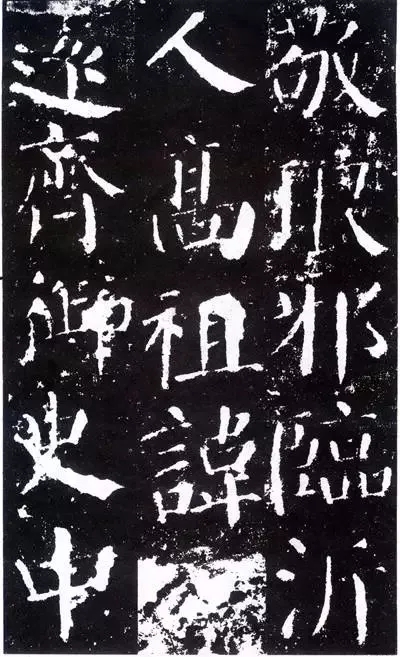 敬琅邪臨沂
人高祖諱
遠齊御史中